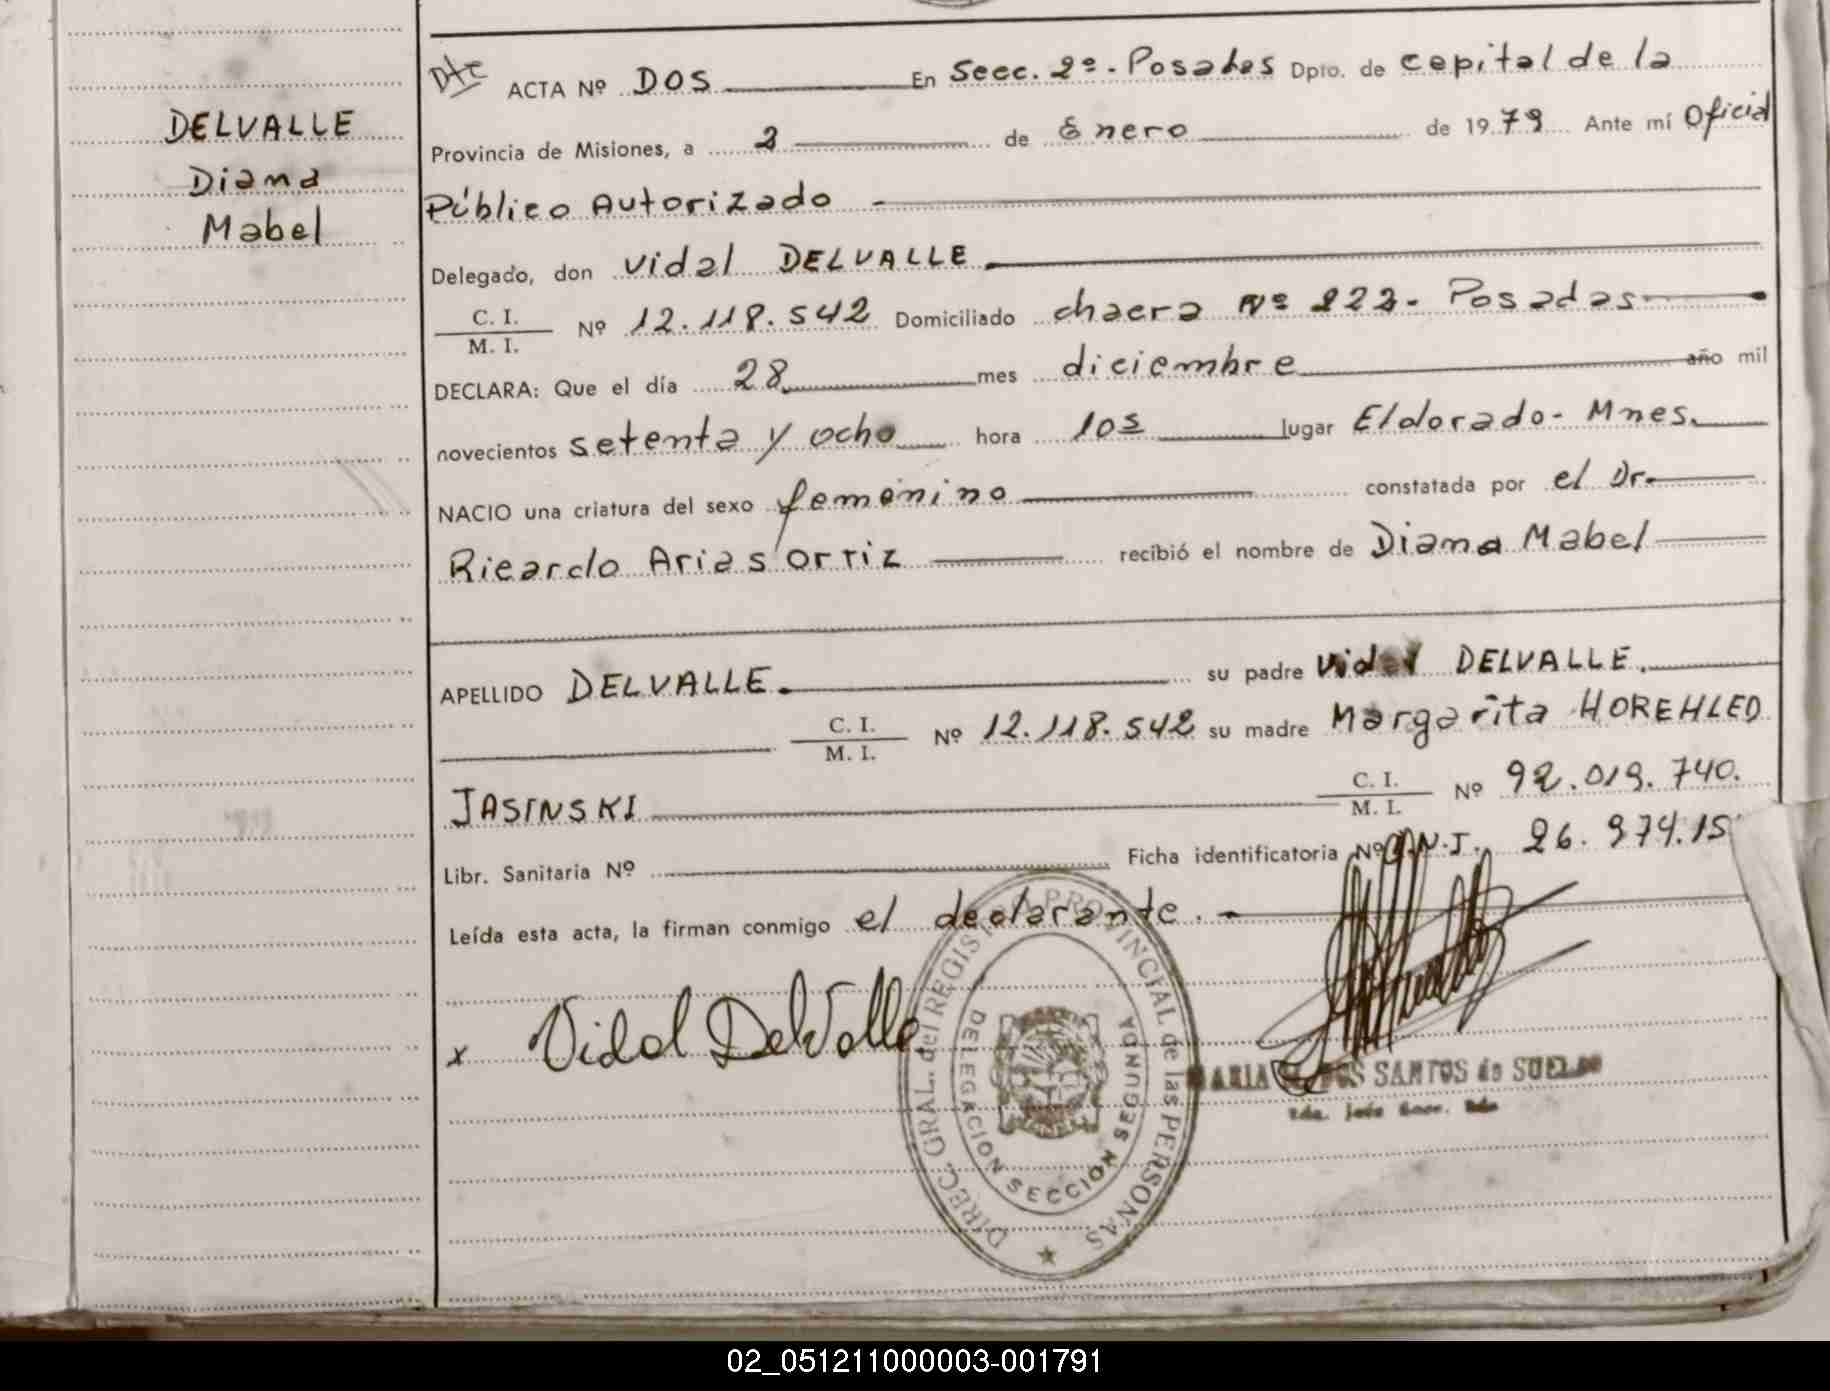 DELVALLE
Diana
Mabel
Dte ACTA Nº DOS En Secc. 2º - Posadas Dpto. de capital de la
Provincia de Misiones, a 2 de Enero de 1979 Ante mí Oficial
Público Autorizado
Delegado, don Vidal DELVALLE
C. I.
M. I.
Nº 12.118.542 Domiciliado chacra Nº 222 - Posadas
DECLARA: Que el día 28 mes diciembre año mil
novecientos setenta y ocho hora 10s lugar Eldorado - Mnes.
NACIO una criatura del sexo femenino constatada por el Dr.
Ricardo Arias Ortiz recibió el nombre de Diana Mabel
APELLIDO DELVALLE su padre Vidal DELVALLE.
C. I.
M. I.
Nº 12.118.542 su madre Margarita HOREHLED
JASINSKI
C. I.
M. I.
Nº 92.019.740.
Libr. Sanitaria Nº Ficha identificatoria Nº 26.974.15
Leída esta acta, la firman conmigo el declarante.-
x Vidal DelValle
DIREC. GRAL. del REGISTRO PROVINCIAL de las PERSONAS
DELEGACION SECCION SEGUNDA
MARIA DOS SANTOS de SUELDO
02_051211000003-001791